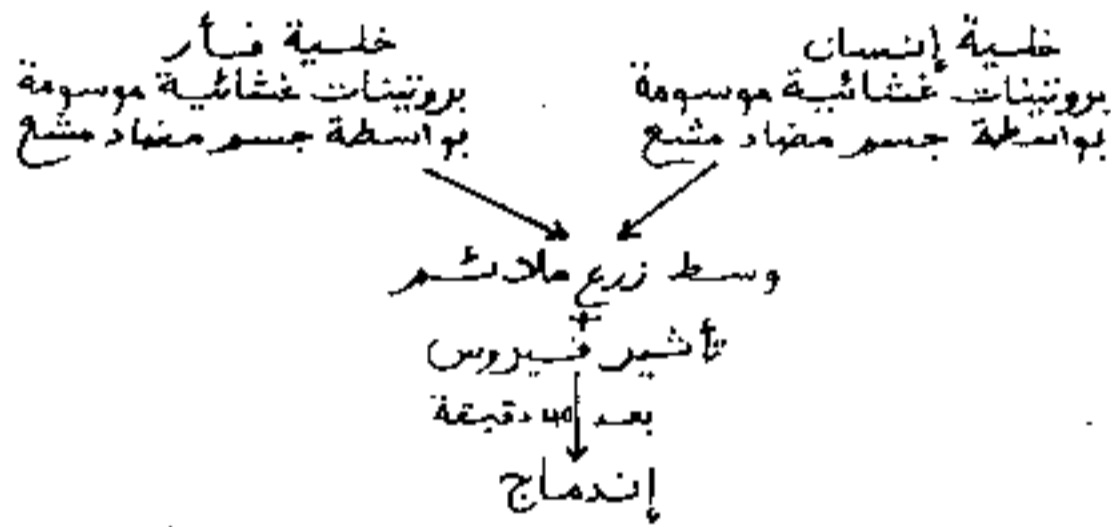 خلية إنسان
بروتينات غشائية موسومة
بواسطة جسم مضاد مشع
خلية فأر
بروتينات غشائية موسومة
بواسطة جسم مضاد مشع
وسط زرع ملائم
+
تأثير فيروس
بعد 40 دقيقة
إندماج